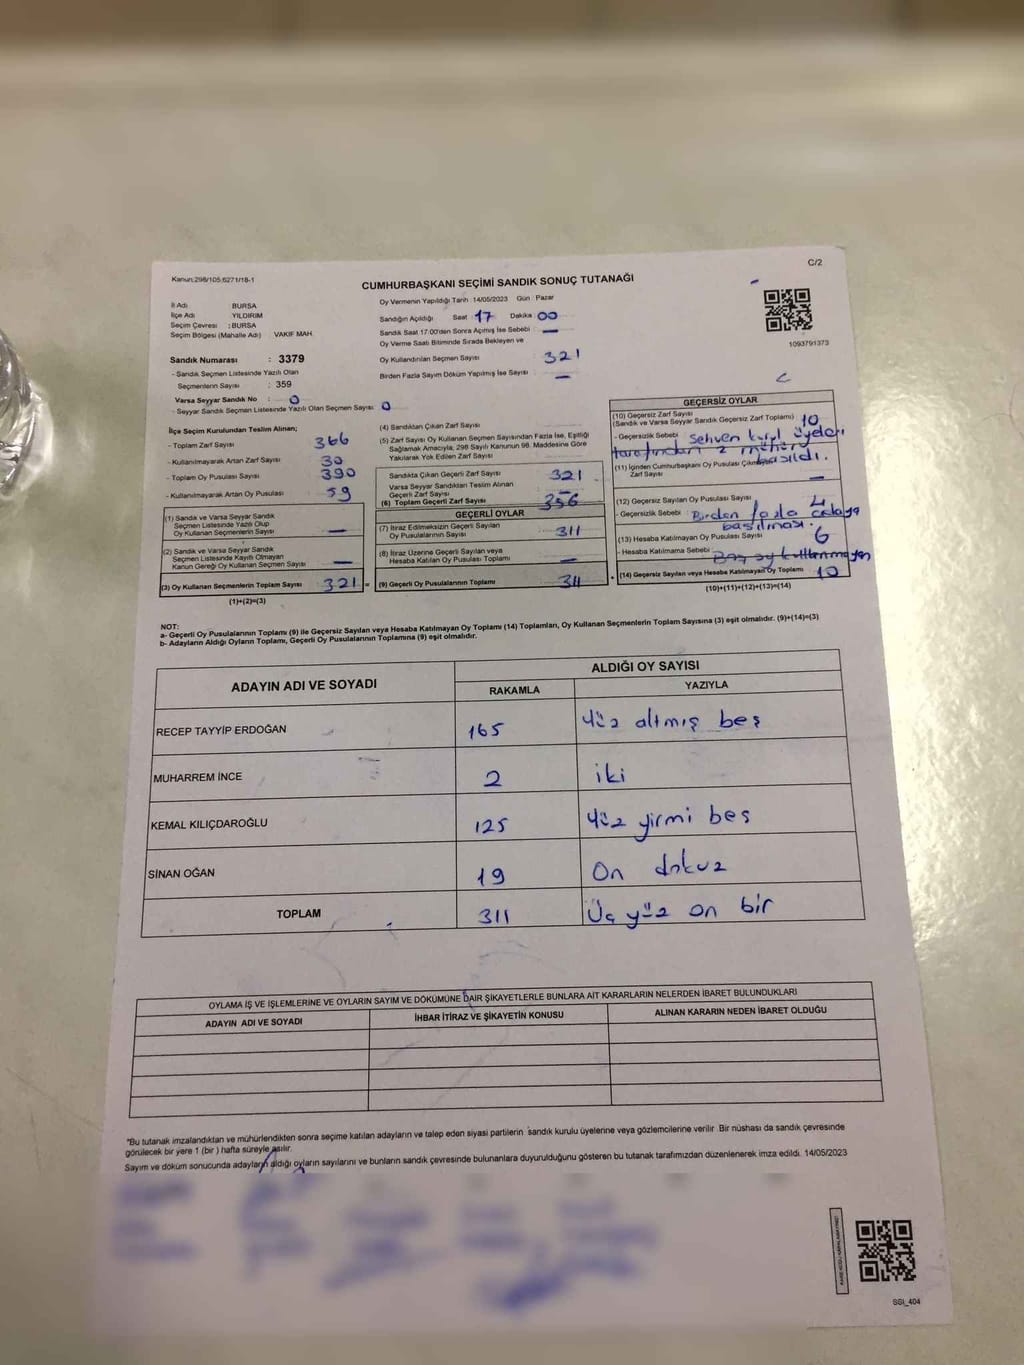 C/2
Kanun:298/105;6271/18-1
CUMHURBAŞKANI SEÇİMİ SANDIK SONUÇ TUTANAĞI
1093791373
İl Adı BURSA
İlçe Adı YILDIRIM
Seçim Çevresi : BURSA
Seçim Bölgesi (Mahalle Adı) VAKIF MAH.
Sandık Numarası : 3379
- Sandık Seçmen Listesinde Yazılı Olan
Seçmenlerin Sayısı : 359
Varsa Seyyar Sandık No : 0
- Seyyar Sandık Seçmen Listesinde Yazılı Olan Seçmen Sayısı: 0
Oy Vermenin Yapıldığı Tarih 14/05/2023 Gün : Pazar
Sandığın Açıldığı Saat 17 Dakika 00
Sandık Saat 17:00'den Sonra Açılmış İse Sebebi : —
Oy Verme Saati Bitiminde Sırada Bekleyen ve
Oy Kullandırılan Seçmen Sayısı : 321
Birden Fazla Sayım Döküm Yapılmış İse Sayısı : —
İlçe Seçim Kurulundan Teslim Alınan;
- Toplam Zarf Sayısı 366
- Kullanılmayarak Artan Zarf Sayısı 30
- Toplam Oy Pusulası Sayısı 390
- Kullanılmayarak Artan Oy Pusulası 59
(1) Sandık ve Varsa Seyyar Sandık
Seçmen Listesinde Yazılı Olup
Oy Kullanan Seçmenlerin Sayısı —
(2) Sandık ve Varsa Seyyar Sandık
Seçmen Listesinde Kayıtlı Olmayan
Kanun Gereği Oy Kullanan Seçmen Sayısı —
(3) Oy Kullanan Seçmenlerin Toplam Sayısı 321 =
(1)+(2)=(3)
(4) Sandıktan Çıkan Zarf Sayısı
(5) Zarf Sayısı Oy Kullanan Seçmen Sayısından Fazla İse, Eşitliği
Sağlamak Amacıyla, 298 Sayılı Kanunun 98. Maddesine Göre
Yakılarak Yok Edilen Zarf Sayısı
Sandıkta Çıkan Geçerli Zarf Sayısı 321
Varsa Seyyar Sandıktan Teslim Alınan
Geçerli Zarf Sayısı —
(6) Toplam Geçerli Zarf Sayısı 356
GEÇERLİ OYLAR
(7) İtiraz Edilmeksizin Geçerli Sayılan
Oy Pusulasının Sayısı 311
(8) İtiraz Üzerine Geçerli Sayılan veya
Hesaba Katılan Oy Pusulası Toplamı —
(9) Geçerli Oy Pusulalarının Toplamı 311 +
GEÇERSİZ OYLAR
(10) Geçersiz Zarf Sayısı
(Sandık ve Varsa Seyyar Sandık Geçersiz Zarf Toplamı) 10
- Geçersizlik Sebebi : Sehven kurul üyeleri
tarafından 2 mühür
basıldı.
(11) İçinden Cumhurbaşkanı Oy Pusulası Çıkmayan
Zarf Sayısı —
(12) Geçersiz Sayılan Oy Pusulası Sayısı 4
- Geçersizlik Sebebi : Birden fazla adaya
basılması.
(13) Hesaba Katılmayan Oy Pusulası Sayısı 6
- Hesaba Katılmama Sebebi : Boş oy kullanmayan
(14) Geçersiz Sayılan veya Hesaba Katılmayan Oy Toplamı 10
(10)+(11)+(12)+(13)=(14)
NOT:
a- Geçerli Oy Pusulalarının Toplamı (9) ile Geçersiz Sayılan veya Hesaba Katılmayan Oy Toplamı (14) Toplamları, Oy Kullanan Seçmenlerin Toplam Sayısına (3) eşit olmalıdır. (9)+(14)=(3)
b- Adayların Aldığı Oyların Toplamı, Geçerli Oy Pusulalarının Toplamına (9) eşit olmalıdır.
ADAYIN ADI VE SOYADI
ALDIĞI OY SAYISI
RAKAMLA YAZIYLA
RECEP TAYYİP ERDOĞAN 165 Yüz altmış beş
MUHARREM İNCE 2 iki
KEMAL KILIÇDAROĞLU 125 Yüz yirmi beş
SİNAN OĞAN 19 On dokuz
TOPLAM 311 Üç yüz on bir
OYLAMA İŞ VE İŞLEMLERİNE VE OYLARIN SAYIM VE DÖKÜMÜNE DAİR ŞİKAYETLERLE BUNLARA AİT KARARLARIN NELERDEN İBARET BULUNDUKLARI
ADAYIN ADI VE SOYADI İHBAR İTİRAZ VE ŞİKAYETİN KONUSU ALINAN KARARIN NEDEN İBARET OLDUĞU
*Bu tutanak imzalandıktan ve mühürlendikten sonra seçime katılan adayların ve talep eden siyasi partilerin sandık kurulu üyelerine veya gözlemcilerine verilir .Bir nüshası da sandık çevresinde
görülecek bir yere 1 (bir ) hafta süreyle asılır.
Sayım ve döküm sonucunda adayların aldığı oyların sayılarını ve bunların sandık çevresinde bulunanlara duyurulduğunu gösteren bu tutanak tarafımızdan düzenlenerek imza edildi. 14/05/2023
SSI_404